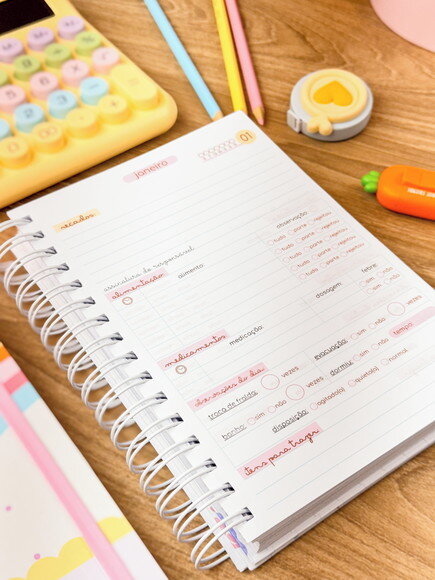 janeiro
01
recados
assinatura do responsável
observação
alimentação
alimento
tudo parte rejeitou
tudo parte rejeitou
tudo parte rejeitou
tudo parte rejeitou
medicamentos
medicação:
dosagem:
febre:
sim não
sim não
observações do dia
troca de fralda: vezes
evacuação: sim não vezes
tempo:
banho: sim não
dormiu: sim não
disposição: agitado(a) quieto(a) normal
itens para trazer